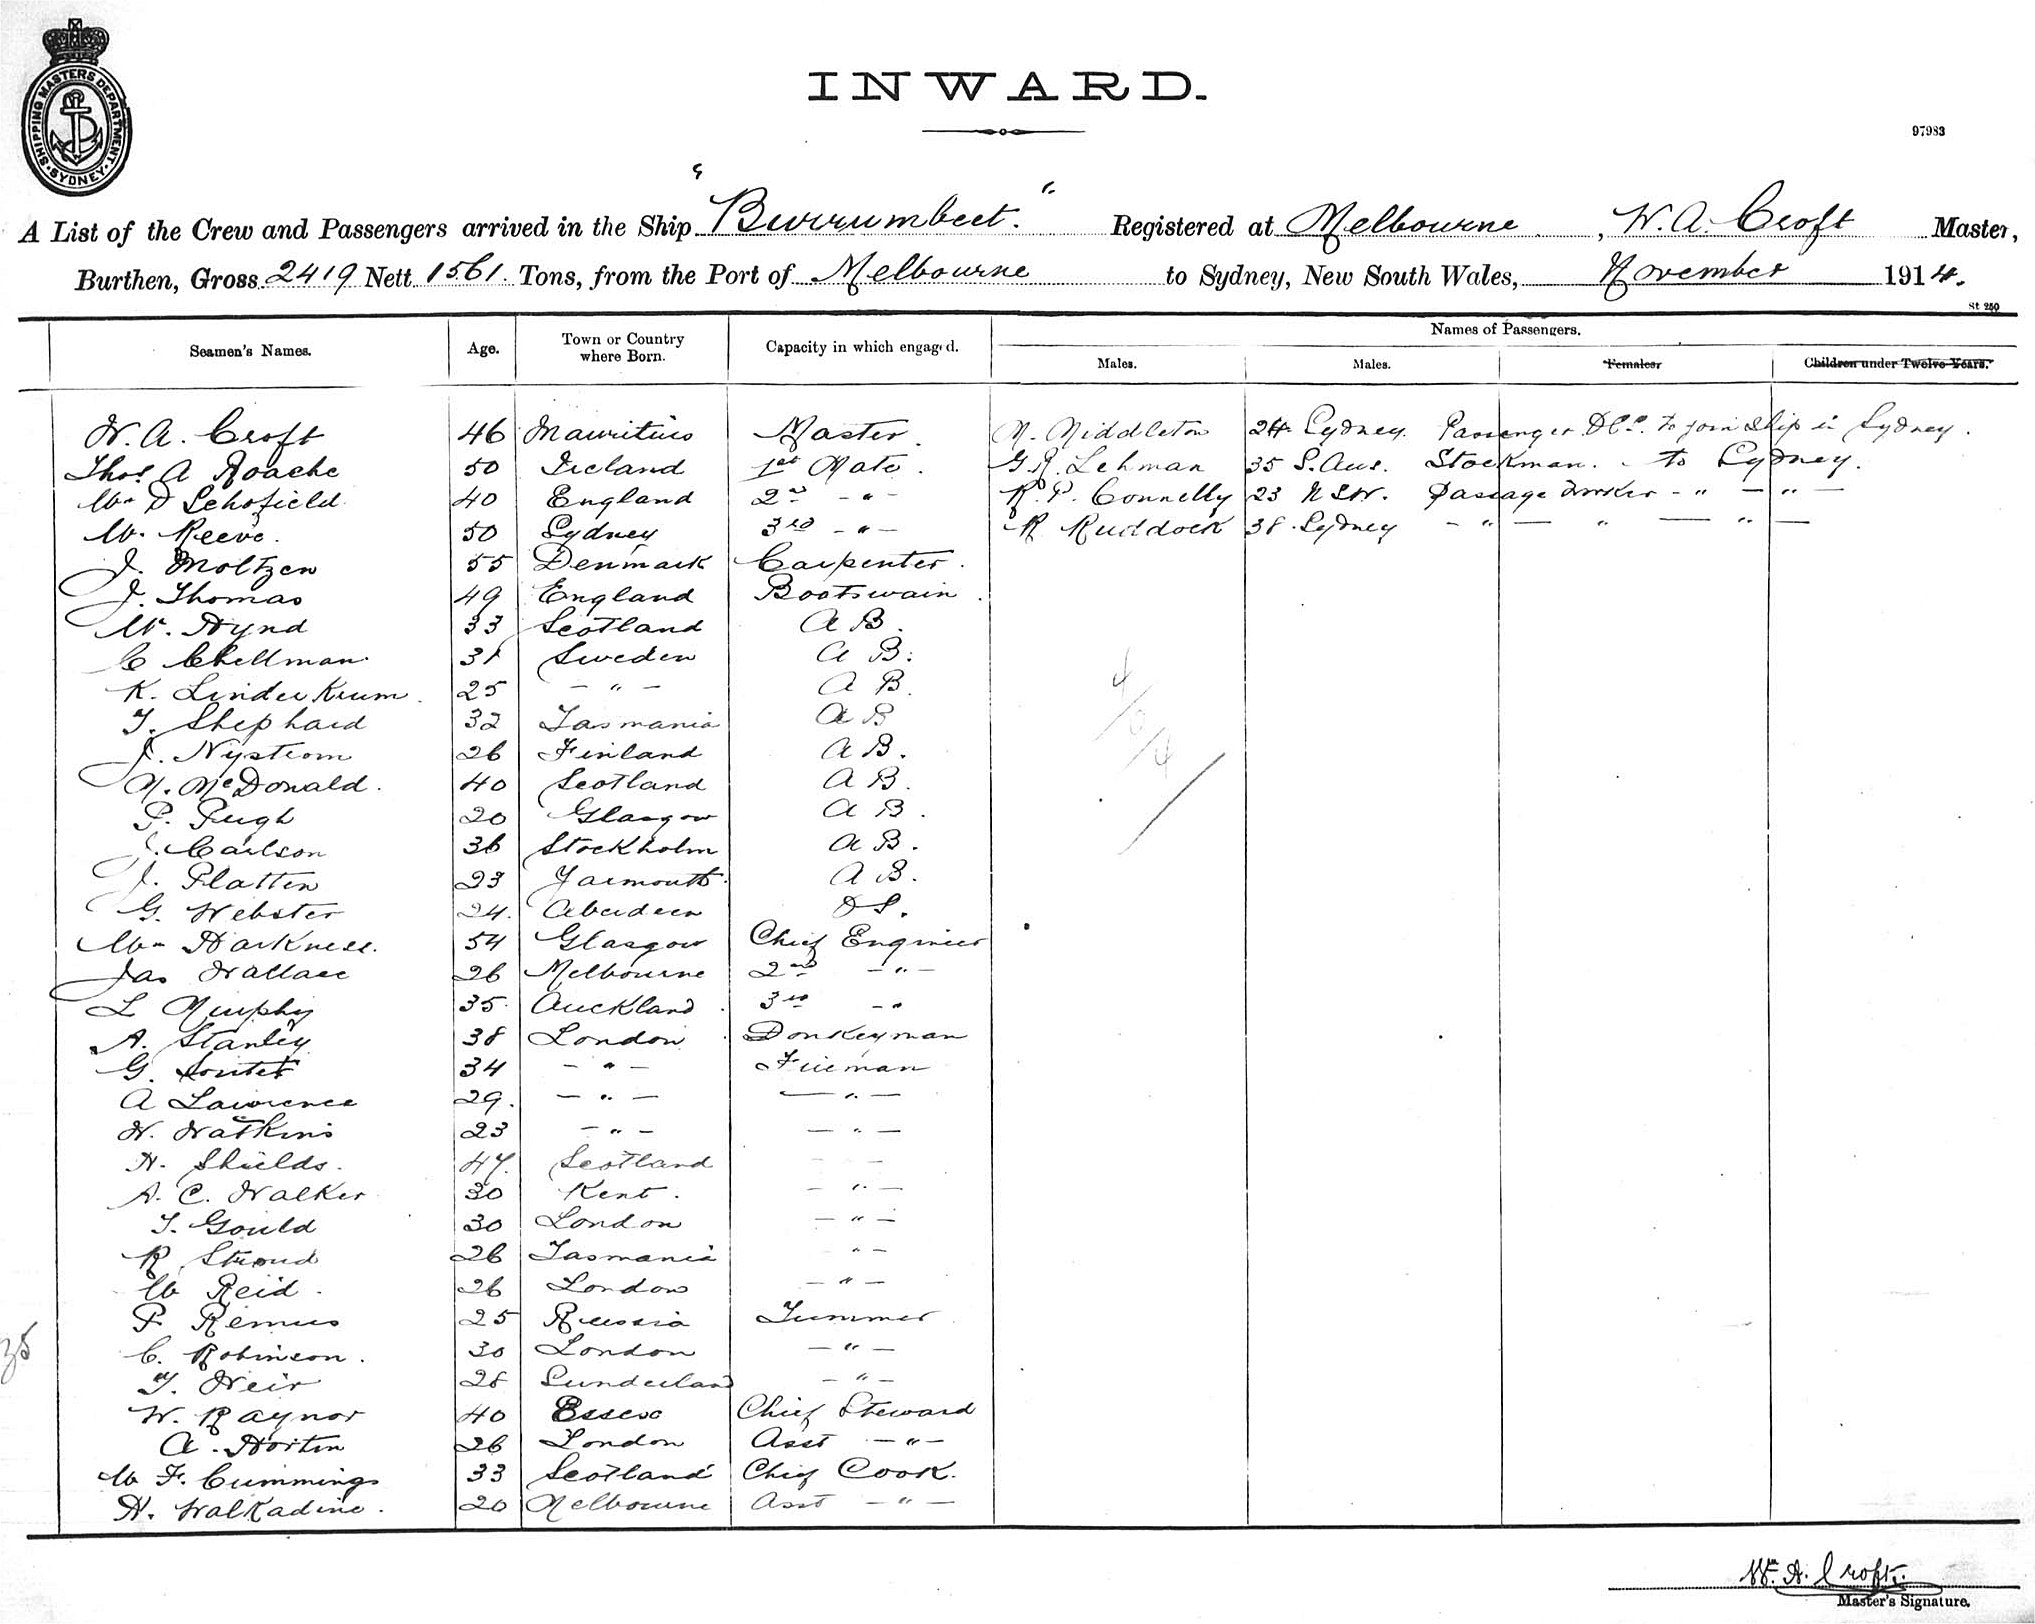 SHIPPING MASTERS DEPARTMENT SYDNEY
INWARD.
97983
A List of the Crew and Passengers arrived in the Ship "Burrumbeet." Registered at Melbourne, W. A. Croft Master,
Burthen, Gross 2419 Nett 1561. Tons, from the Port of Melbourne to Sydney, New South Wales, November 1914.
St 250
Names of Passengers.
Seamen's Names. Age. Town or Country where Born. Capacity in which engaged. Males. Males. Females. Children under Twelve Years.
W. A. Croft 46 Mauritius Master. M. Middleton 24 Sydney. Passenger to join ship in Sydney.
Thos. A Roache 50 Ireland 1st Mate. G. R. Lehman 35 S. Aus. Stockman. to Sydney.
Wm D Schofield 40 England 2nd - " - R. P. Connelly 23 NSW. Passage Worker - " - " -
W. Reeve. 50 Sydney 3rd - " - R Ruddock 38. Sydney - " - " - " -
J. Moltzen 55 Denmark Carpenter.
J. Thomas 49 England Boatswain.
W. Hynd 33 Scotland A B.
C Chellman. 31 Sweden A B.
K. Linderkrum. 25 - " - A B.
T. Shephard 32 Tasmania A B
J. Nystrom 26 Finland A B.
N. McDonald. 40 Scotland A B.
P. Pugh 20 Glasgow A B.
J. Carlson 36 Stockholm A B.
J. Platten 23 Yarmouth. A B.
G. Webster 24. Aberdeen O S.
Wm Harkness. 54 Glasgow Chief Engineer
Jas Wallace 26 Melbourne 2nd - " -
L Murphy 35. Auckland. 3rd - "
A. Stanley 38 London. Donkeyman
G. Souter 34 - " - Fireman
A Lawrence 29. - " - - " -
W. Watkins 23 - " - - " -
H. Shields. 47. Scotland - -
A. C. Walker 30 Kent. - " -
T. Gould 30 London - " -
R Stroud 26 Tasmania " -
W Reid. 26 London - " -
P. Remus 25 Russia Trimmer
35
C. Robinson. 30 London - " -
T. Weir 28 Sunderland - " -
W. Raynor 40 Essex Chief Steward
A. Hortin 26 London Asst - " -
W F. Cummings 33 Scotland Chief Cook.
H. Walkadine. 20 Melbourne Asst - " -
4/0/4
Wm. A. Croft.
Master's Signature.